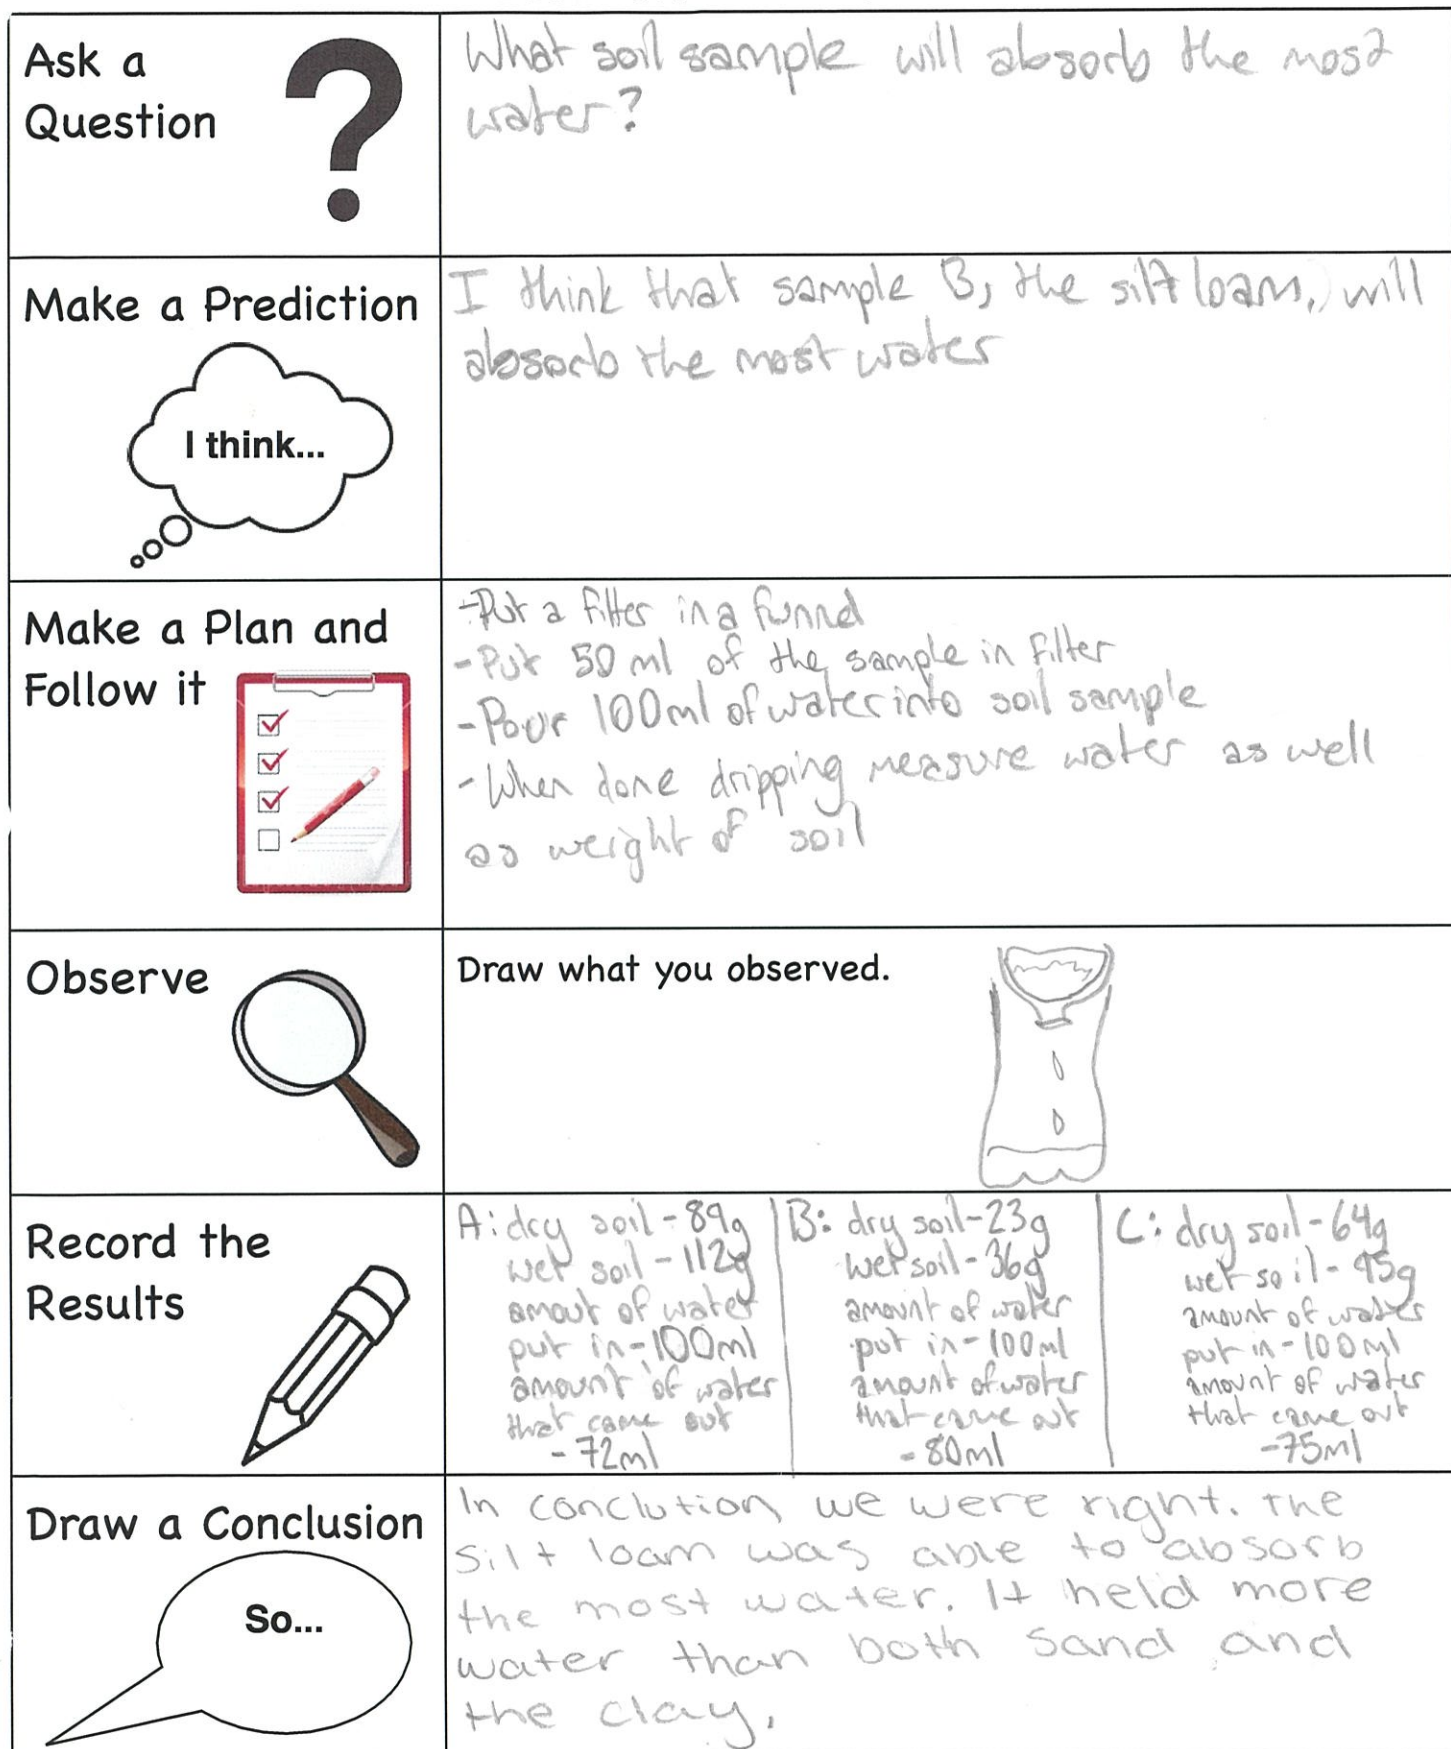 Ask a
Question
What soil sample will absorb the most
water?
Make a Prediction
I think...
I think that sample B, the silt loam, will
absorb the most water
Make a Plan and
Follow it
-Put a filter in a funnel
-Put 50 ml of the sample in filter
-Pour 100ml of water into soil sample
-When done dripping measure water as well
as weight of soil
Observe
Draw what you observed.
Record the
Results
A: dry soil - 89g
wet soil - 112g
amout of water
put in - 100ml
amount of water
that came out
- 72ml
B: dry soil - 23g
wet soil - 36g
amount of water
put in - 100ml
amount of water
that came out
- 80ml
C: dry soil - 64g
wet soil - 95g
amount of water
put in - 100ml
amount of water
that came out
- 75ml
Draw a Conclusion
So...
In conclution we were right. The
silt loam was able to absorb
the most water. It held more
water than both sand and
the clay.